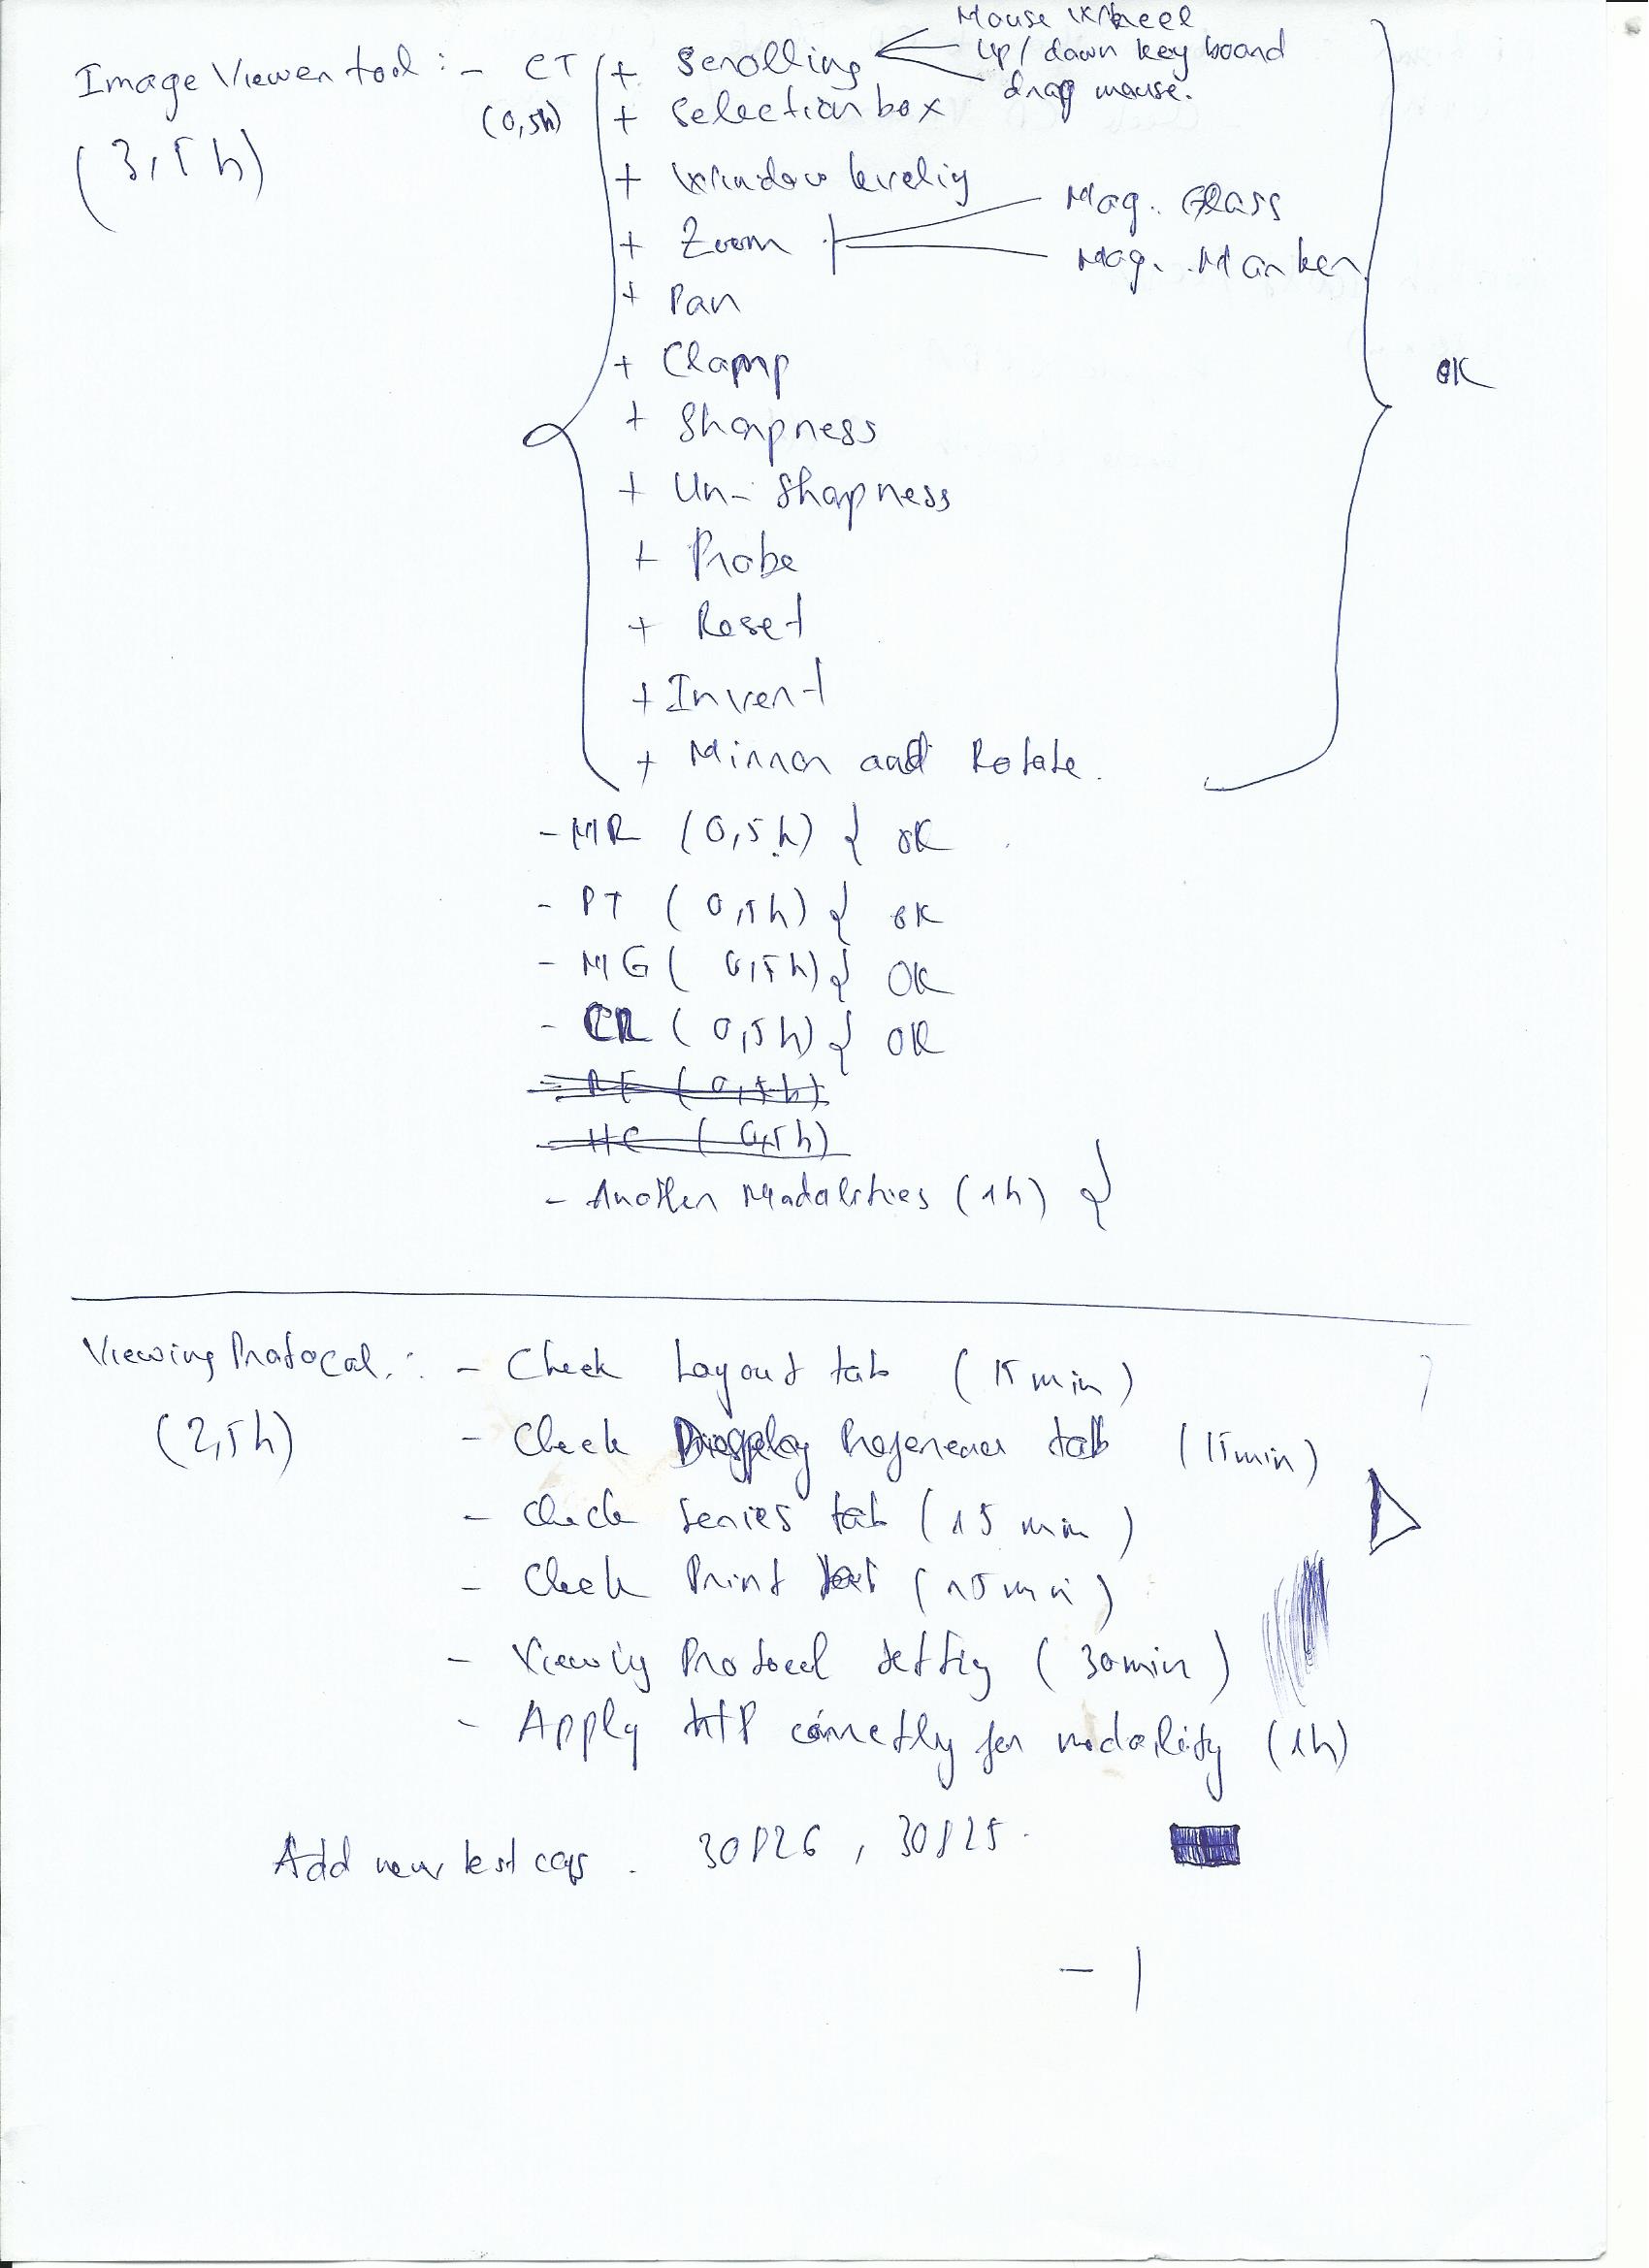 Mouse Wheel
Image Viewer tool : - CT + Scrolling up/down key board
drag mouse.
(0,5h) + Selection box
(3,5h)
+ Window leveling
Mag. Glass
+ Zoom
Mag. Marker
+ Pan
+ Clapmp
OK
+ Shapness
+ Un-Shapness
+ Probe
+ Reset
+ Invert
+ Mirror and Rotate.
- MR (0,5h) } OK
- PT (0,5h) } OK
- MG (0,5h) } OK
- CR (0,5h) } OK
- RF (0,5h)
- (0,5h)
- Another Modalities (1h) }
Viewing Protocal : - Check Layout tab (15 min)
(2,5h)
- Check Display tab (15min)
- Check Series tab (15 min)
- Check Print (15 min)
- Viewing Protocol setting (30min)
- Apply correctly for modality (1h)
Add new test case . 30826 , 30825.
- |